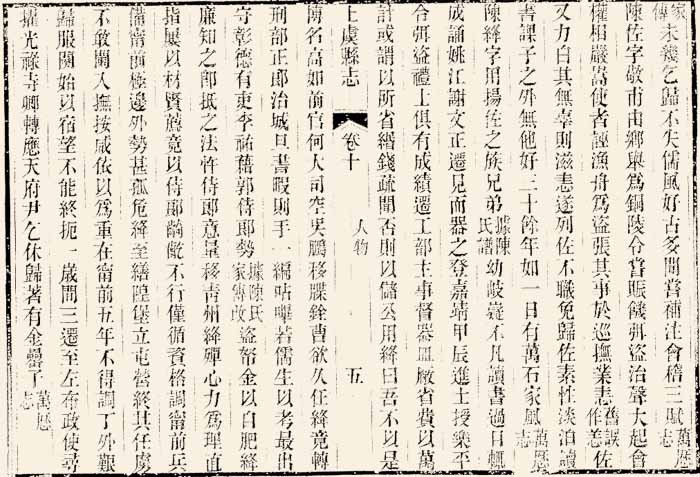 家傳未幾乞歸不失儒風好古多聞嘗補注會稽三賦萬歷志
陳佐字敬甫由鄉舉為銅陵令嘗賑饑弭盜治聲大起會
權相嚴嵩使者誣漁舟為盜張其事於巡撫業恚舊誤作恙佐
又力白其無辜則滋恚遂列佐不職免歸佐素性淡泊讀
書課子之外無他好三十餘年如一日有萬石家風萬歷志
陳絳字用揚佐之族兄弟據陳氏譜幼岐嶷不凡讀書過目輒
成誦姚江謝文正遷見而器之登嘉靖甲辰進士授樂平
令弭盜禮士俱有成績遷工部主事督器皿廠省費以萬
計或謂以所省緡錢疏聞否則以儲公用絳曰吾不以是
上虞縣志 卷十 人物 五
博名高如前官何大司空吳鵬移牒銓曹欲久任絳竟轉
刑部正郎治城旦書暇則手一編呫嗶若儒生以考最出
守彰德有吏季祐藉郭侍郎勢據陳氏家傳改盜帑金以自肥絳
廉知之卽抵之法忤侍郎意量移青州絳殫心力為理直
指屢以材賢薦竟以侍郎齮齕不行僅循資格調甯前兵
備甯前極邊外勢甚孤危絳至繕隍堡立屯營終其任虜
不敢闌入撫按咸依以為重在甯前五年不得調丁外艱
歸服闋始以宿望不能終扼一歲間三遷至左布政使尋
擢光祿寺卿轉應天府尹乞休歸著有金罍子萬歷志